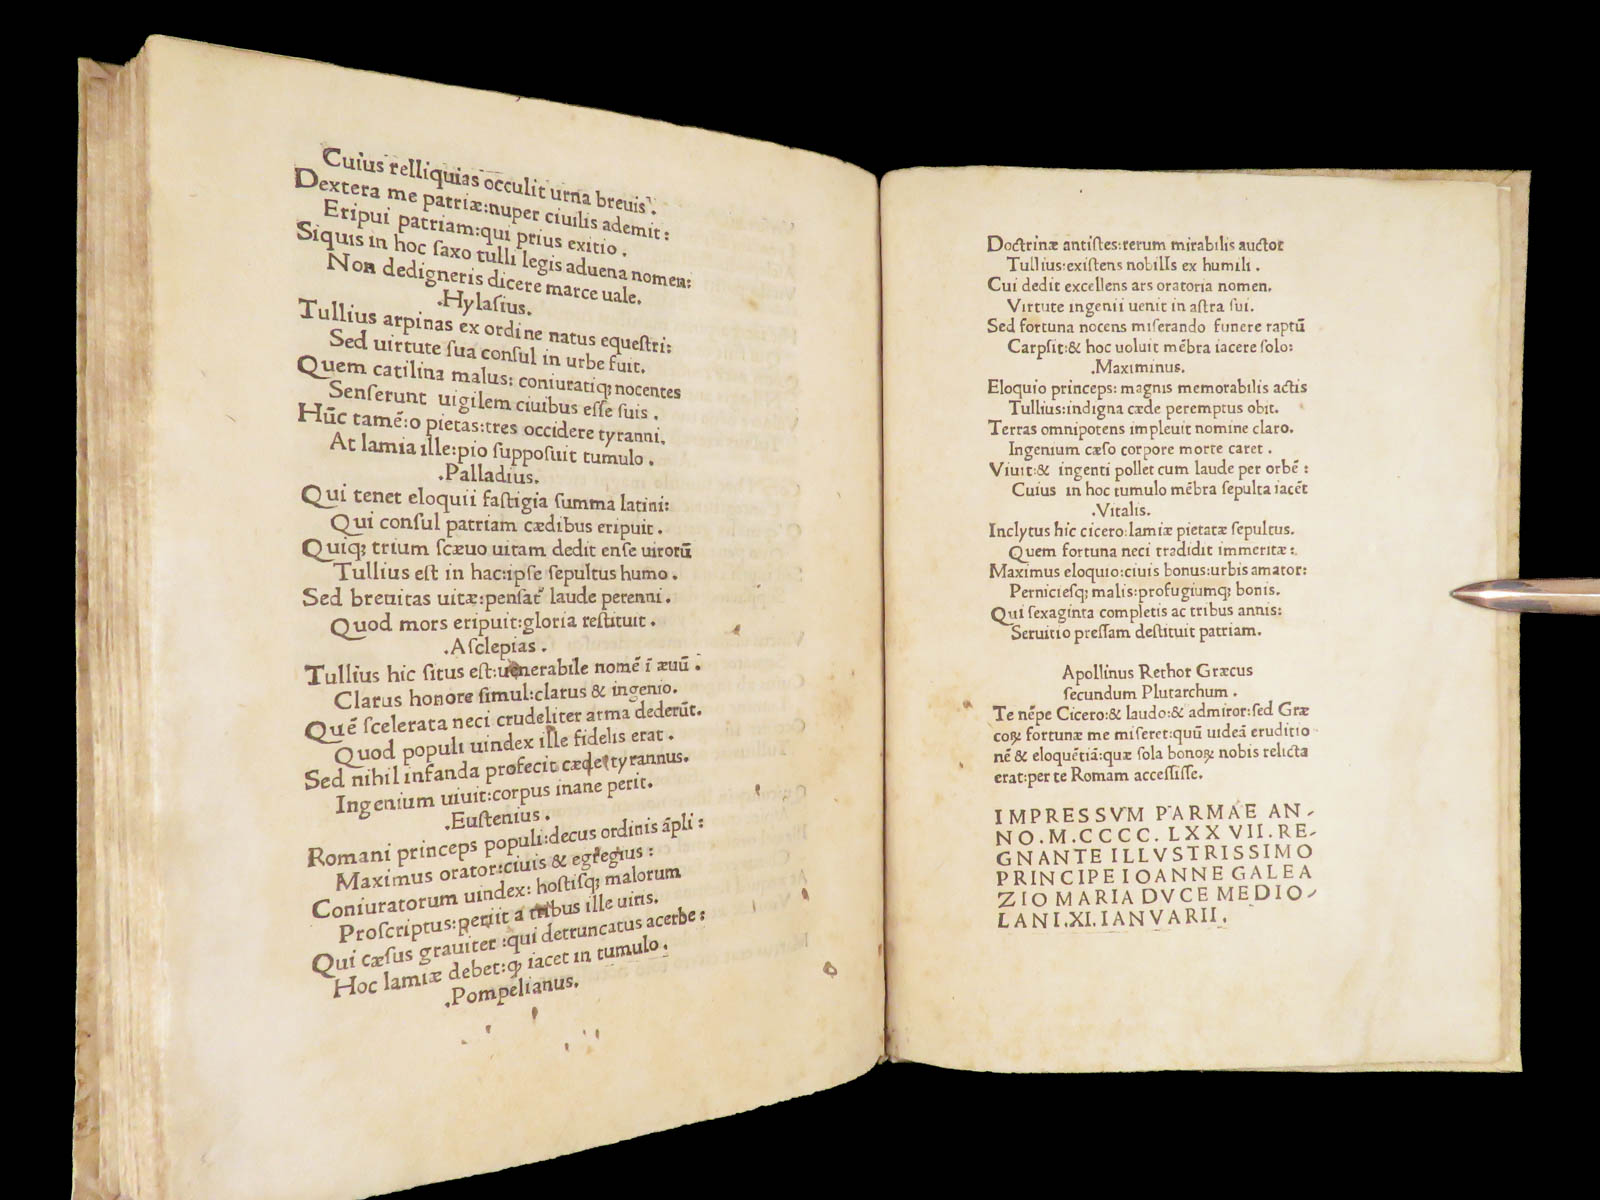 Cuius relliquias occulit urna breuis.
Dextera me patriæ:nuper ciuilis ademit:
Eripui patriam:qui prius exitio.
Siquis in hoc ſaxo tulli legis aduena nomen:
Non dedigneris dicere marce uale.
.Hylaſius.
Tullius arpinas ex ordine natus equeſtri:
Sed uirtute ſua conſul in urbe fuit.
Quem catilina malus: coniuratiqꝫ nocentes
Senſerunt uigilem ciuibus eſſe ſuis.
Hūc tamē:o pietas:tres occidere tyranni.
At lamia ille:pio ſuppoſuit tumulo.
.Palladius.
Qui tenet eloquii faſtigia ſumma latini:
Qui conſul patriam cædibus eripuit.
Quiqꝫ trium ſcæuo uitam dedit enſe uirorū
Tullius eſt in hac:ipſe ſepultus humo.
Sed breuitas uitæ:penſat᷑ laude perenni.
Quod mors eripuit:gloria reſtituit.
.Aſclepias.
Tullius hic ſitus eſt:uenerabile nomē ī æuū.
Clarus honore ſimul:clarus & ingenio.
Quē ſcelerata neci crudeliter arma dederūt.
Quod populi uindex ille fidelis erat.
Sed nihil infanda profecit cæde tyrannus.
Ingenium uiuit:corpus inane perit.
.Euſtenius.
Romani princeps populi:decus ordinis āpli:
Maximus orator:ciuis & egregius:
Coniuratorum uindex: hoſtiſqꝫ malorum
Proſcriptus:periit a tribus ille uiris.
Qui cæſus grauiter:qui detruncatus acerbe:
Hoc lamiæ debet:ꝙ iacet in tumulo.
.Pompelianus.
Doctrinæ antiſtes:rerum mirabilis auctor
Tullius:exiſtens nobilIs ex humili.
Cui dedit excellens ars oratoria nomen.
Virtute ingenii uenit in aſtra ſui.
Sed fortuna nocens miſerando funere raptū
Carpſit:& hoc uoluit mēbra iacere ſolo:
.Maximinus.
Eloquio princeps: magnis memorabilis actis
Tullius:indigna cæde peremptus obit.
Terras omnipotens impleuit nomine claro.
Ingenium cæſo corpore morte caret.
Viuit:& ingenti pollet cum laude per orbē:
Cuius in hoc tumulo mēbra ſepulta iacēt
.Vitalis.
Inclytus hic cicero:lamiæ pietatæ ſepultus.
Quem fortuna neci tradidit immeritæ:
Maximus eloquio:ciuis bonus:urbis amator:
Pernicieſqꝫ malis:profugiumqꝫ bonis.
Qui ſexaginta completis ac tribus annis:
Seruitio preſſam deſtituit patriam.
Apollinus Rethor Græcus
ſecundum Plutarchum.
Te nēpe Cicero:& laudo:& admiror:ſed Græ
coꝝ fortunæ me miſeret:quū uideā eruditio
nē & eloquētiā:quæ ſola bonoꝝ nobis relicta
erat:per te Romam acceſſiſſe.
IMPRESSVM PARMAE AN-
NO.M.CCCC.LXXVII.RE-
GNANTE ILLVSTRISSIMO
PRINCIPE IOANNE GALEA
ZIO MARIA DVCE MEDIO-
LANI.XI.IANVARII.